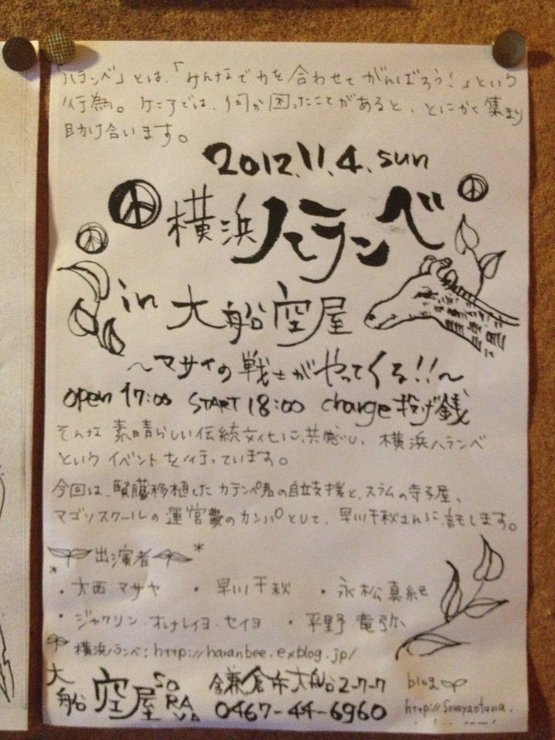 「ハランベ」とは、「みんなで力を合わせて がんばろう！」という
行為。ケニアでは、何か困ったことがあると、とにかく集まり
助け合います。
2012.11.4.sun
横浜ハランベ
in 大船空屋
～マサイの戦士がやってくる!!～
open 17:00 START 18:00 charge 投げ銭
そんな 素晴らしい伝統文化に共感し、横浜ハランベ
というイベントを行っています。
今回は、腎臓移植した カテンベ君の自立支援と、スラムの寺子屋、
マゴソスクールの 運営費のカンパとして、早川千秋さんに託します。
出演者
・大西マサヤ ・早川千秋 ・永松真紀
・ジャクソン・オレナレイヨ・セイヨ ・平野竜弥
横浜ハランベ: http://haranbee.exblog.jp/
大船 空屋 SORAYA
鎌倉市大船2-7-7
0467-44-6960
blog
http://